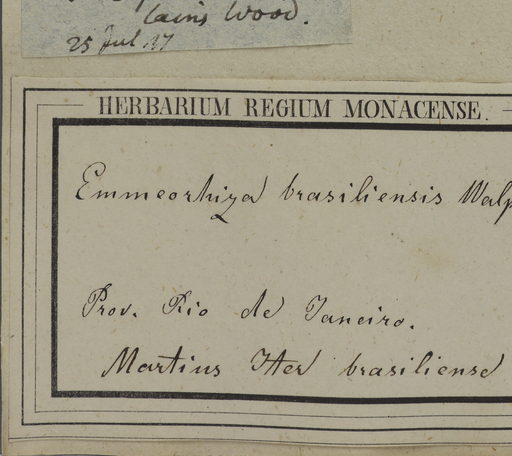 Wood.
25 Jul
HERBARIUM REGIUM MONACENSE.
Emmeorhiza brasiliensis Walp
Prov. Rio de Janeiro.
Martius Iter brasiliense